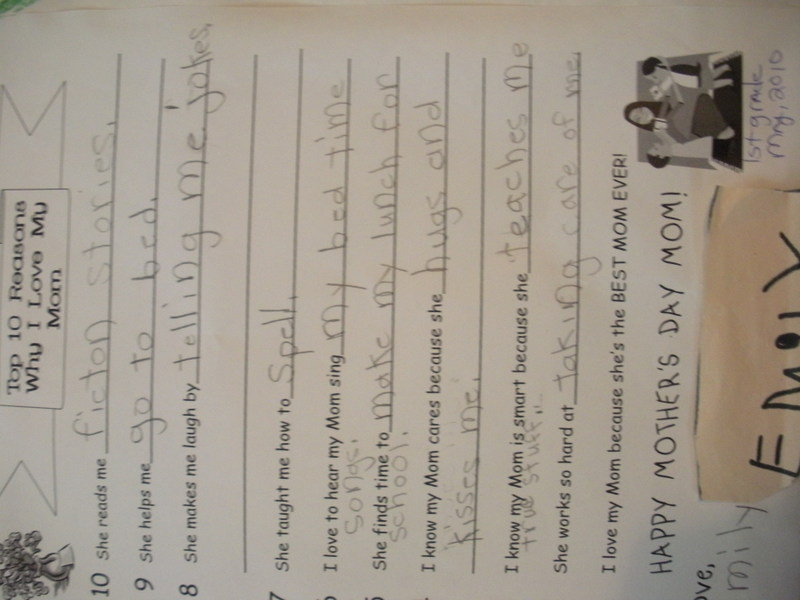 Top 10 Reasons
Why I Love My
Mom
10 She reads me ficton stories.
9 She helps me go to bed.
8 She makes me laugh by telling me jokes.
7 She taught me how to spell.
I love to hear my Mom sing my bed time
songs.
She finds time to make my lunch for
school.
I know my Mom cares because she hugs and
kisses me.
I know my Mom is smart because she teaches me
true stuff.
She works so hard at taking care of me.
I love my Mom because she's the BEST MOM EVER!
HAPPY MOTHER'S DAY MOM!
1st grade
May, 2010
ove,
mily
EMILY